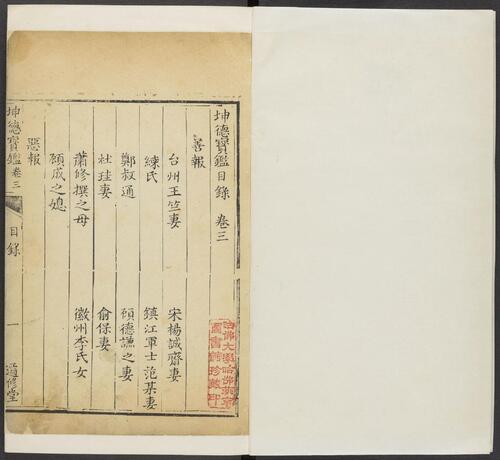 坤德寶鑑目錄 卷三
善報
台州王竺妻 宋楊誠齋妻
練氏 鎮江軍士范某妻
鄭叔通 碩德謙之妻
杜珪妻 俞保妻
蕭修撰之母 徽州李氏女
顧成之媳
惡報
坤德寶鑑 卷三 目錄 一 道修堂
哈佛大學哈佛燕京圖書館珍藏印